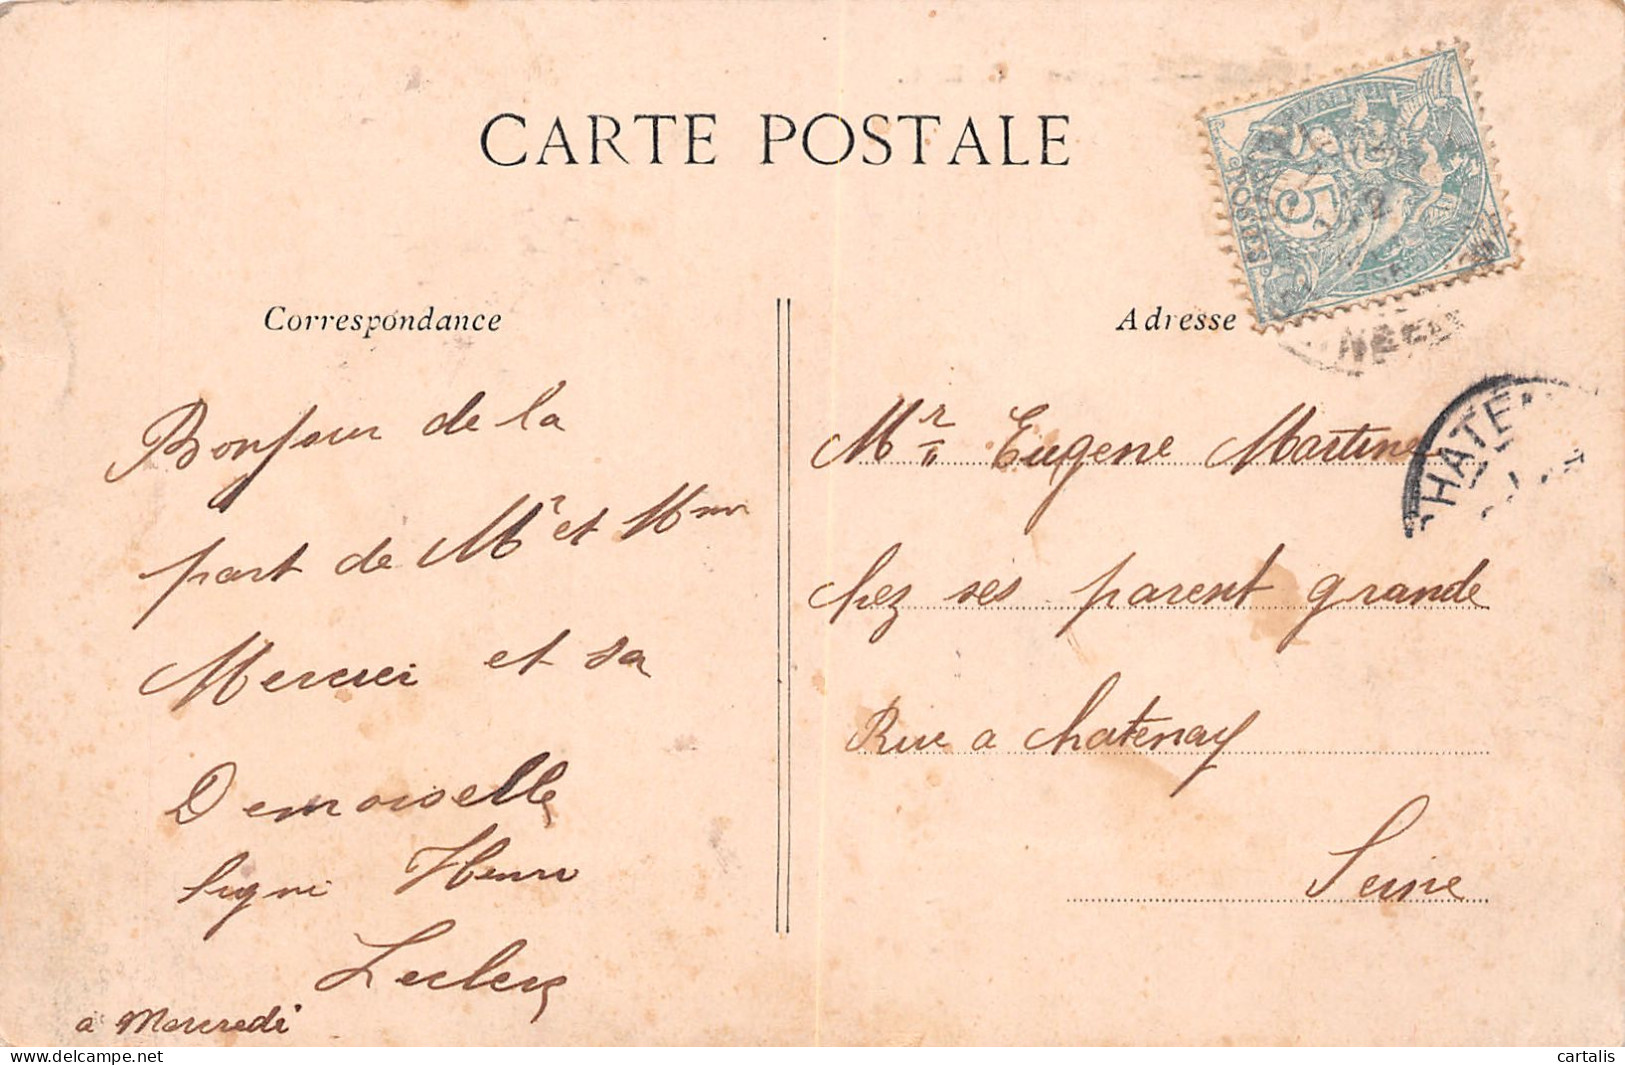 CARTE POSTALE
POSTES
5
Correspondance
Adresse
Bonjour de la
part de Mr et Mme
Mercrei et sa
Demoiselle
signi Henri
Leclerq
a Mercredi
Mr Eugene Martine
chez ses parent grande
Rue a Chatenay
Seine
CHATEN
delcampe.net
cartalis